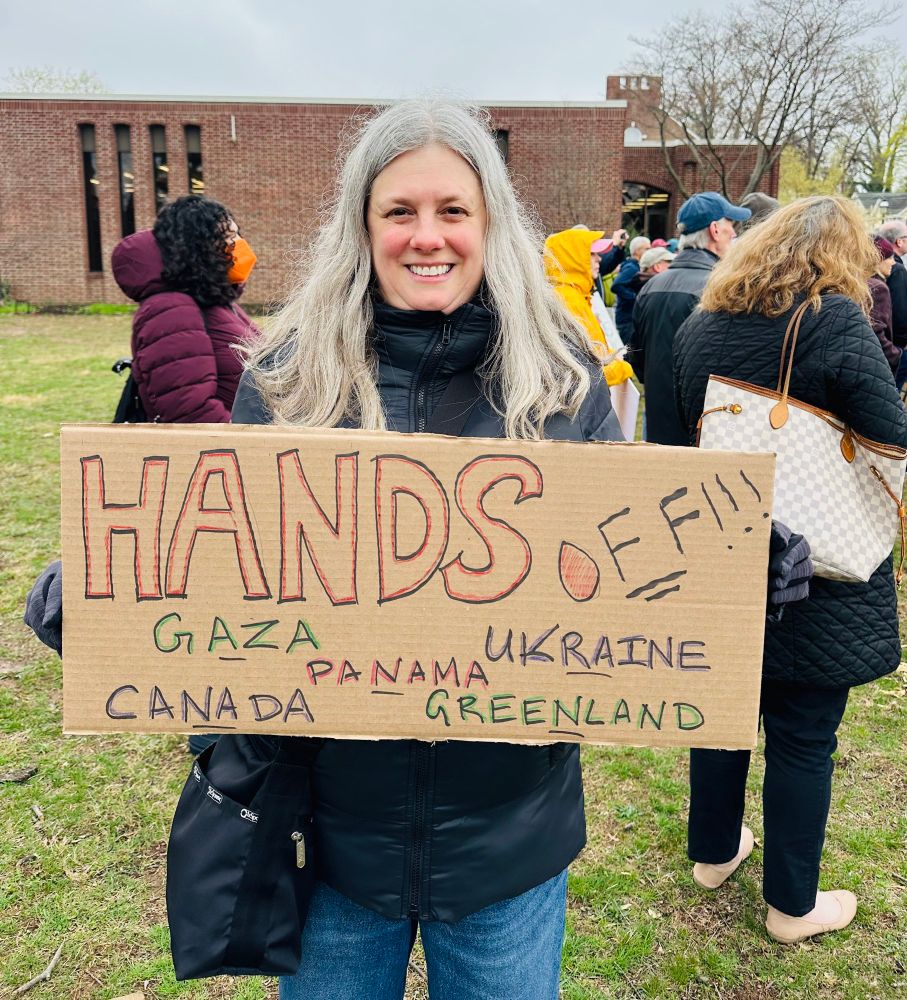 HANDS OFF!!!
GAZA
UKRAINE
PANAMA
CANADA
GREENLAND